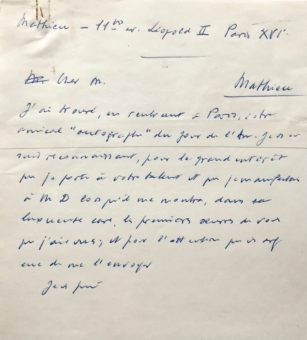 Mathieu - 11bis av. Léopold II Paris XVI
Cher M. Mathieu
J'ai trouvé, en rentrant à Paris, votre
amical "autographe" du Jour de l'An. Je vous en
suis reconnaissant, pour le grand intérêt
que je porte à votre talent et que je manifestais
à M D lorsqu'il me montra, dans sa
luxueuse cave, les premières œuvres de vous
que j'ai vues; et pour l'attention que vous avez
eue de me l'envoyer
Je vous prie